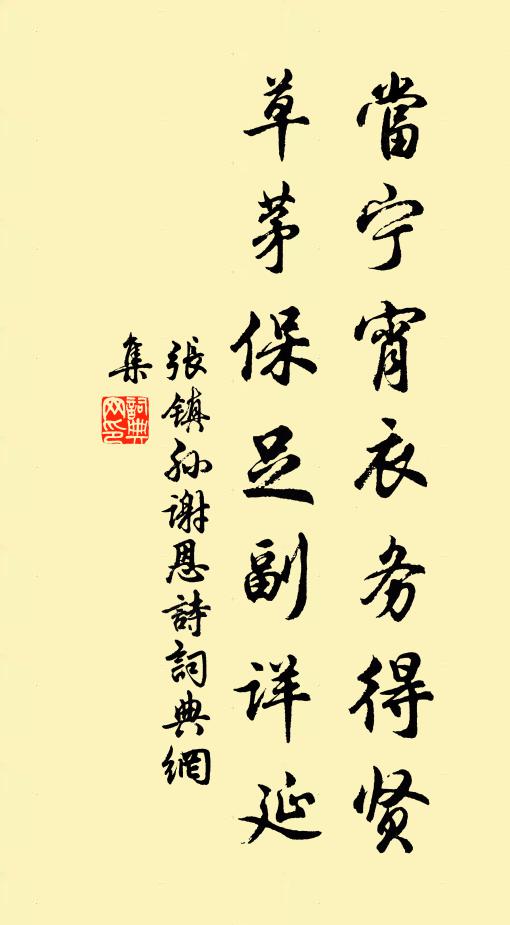 當宁宵衣务得贤
草茅保足副详延
張镇孙谢恩詩詞典網
集
詞典
网印